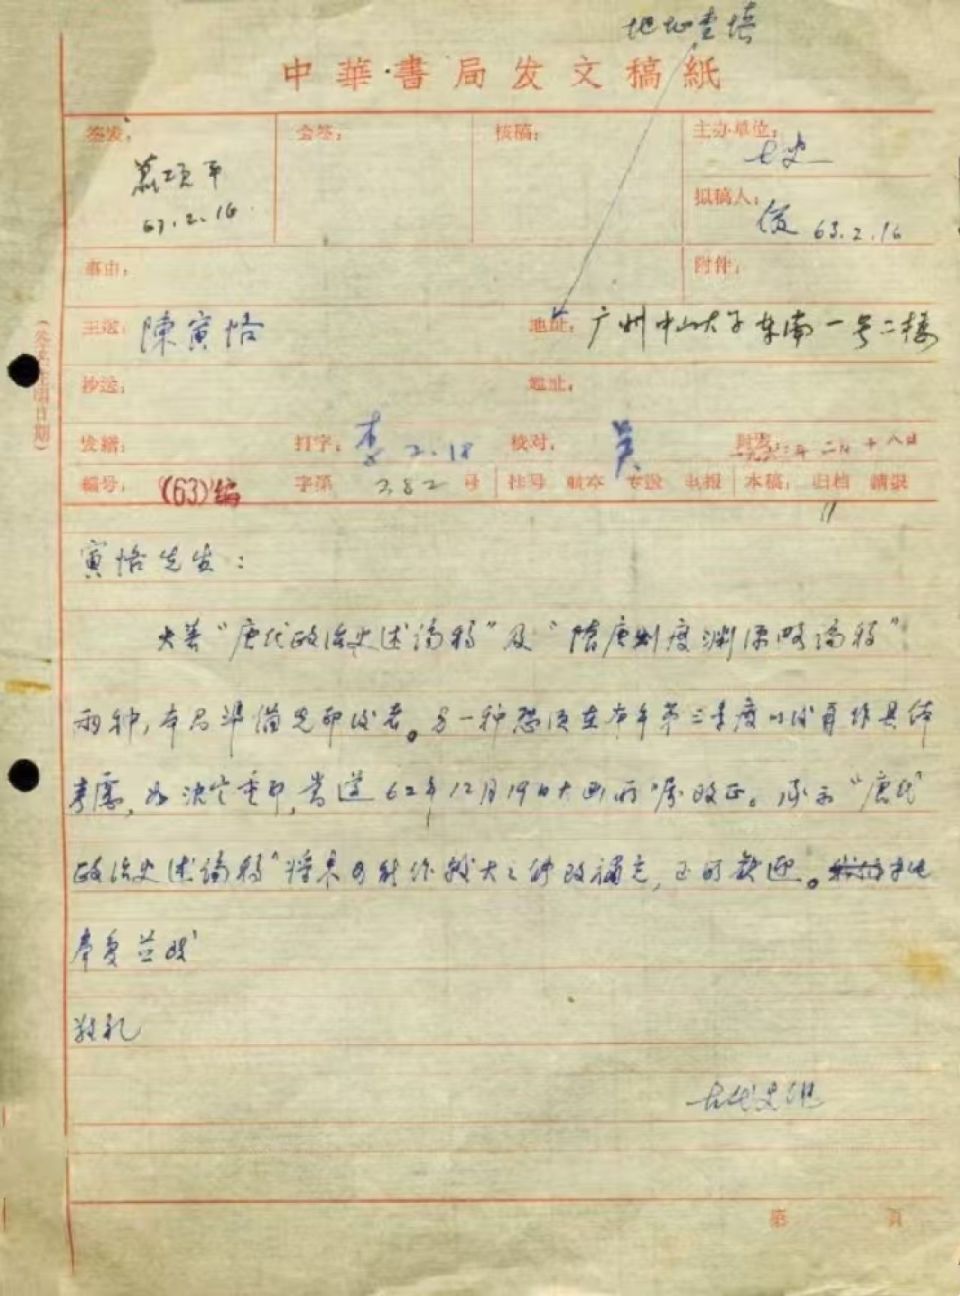 地址查填
中華書局发文稿紙
签发：
会签：
核稿：
主办单位：
古史
萧项平
63.2.16.
拟稿人：
63.2.16
事由：
附件：
主送：陳寅恪
地址：广州中山大学东南一号二楼
抄送：
地址：
发繕：
打字：李 2.18
校对：吴
封发：一九六三年二月十八日
编号：(63)编
字第 382 号
挂号 航空 专送 电报
本稿：归档
寅恪先生：
大著“唐代政治史述論稿”及“隋唐制度淵源略論稿”
兩种，本局準備先印後者。另一种恐須至本年第三季度以後再作具体
考慮，如決定重印，当遵62年12月19日大函所嘱改正。承示“唐代
政治史述論稿”將来可能作較大之修改補充，至所歓迎。
專复並致
敬礼
古代史組
第 頁